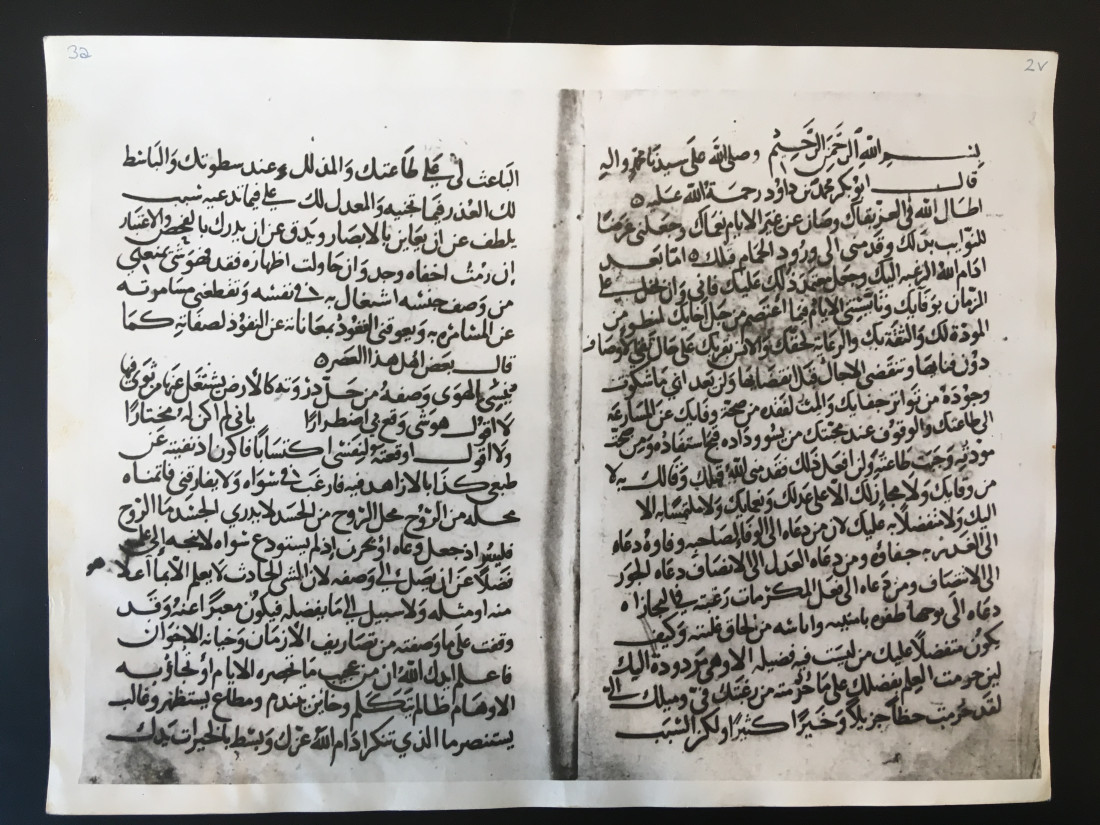 2v
بسم الله الرحمن الرحيم وصلى الله على سيدنا محمد واله
قال ابو بكر محمد بن داؤد رحمة الله عليه
اطال الله في العز بقاك وصان عن غير الايام نعماك وجعلني عرضا
للنوايب بدلك وقدمني الى ورود الحمام قبلك اما بعد
ادام الله الرغبة اليك وجعل معتمد ذلك عليك فاني وان بخل علي
الزمان بوفايك
المودة لك والثقة بك والرعاية لحقك على حال
دون فنايها وتنقضي الاجال قبل انقضايها ولن يعد اني ما شكوت
وجوده من تواتر جفايك لفقده من صحة وفايك عن المسارعة
الى طاعتك والوقوف عند محبتك من ومن صحة
مودته وجبت طاعته ولن افعل ذلك قدمني الله قبلك
من وفايك ولا مجاز لك الا على عدلك ولا
اليك ولا متفضلا به عليك لان من دعاه الى الوفا لصاحبه وفاوه دعاه
الى الغدر به جفاؤه ومن دعاه العدل الى الانصاف دعاه الجور
الى الانصاف ومن دعاه الى فعل المكرمات رغبته في المجازاة
دعاه الى من لحاق غلبته وكيف
يكون متفضلا عليك من ليست فيه فضيلة الا وهي مردودة اليك
لين حرمت العلم بفضلك على ما حرمته من رغبتك في وميلك الي
لقد حرمت حظا جزيلا وخيرا كثيرا ولكن السبب
32
الباعث لي على طاعتك والمذلل عند سطوتك والباسط
لك العذر فيما تجنيه والمعدل لك علي فيما تدعيه سبب
يلطف عن ان يعاين بالابصار ويدق عن ان يدرك بالفحص والاعتبار
ان رمت اخفاه وجد وان حاولت اظهاره فقد فهو شي يمنعني
من وصف جنسه اشتغال به في نفسه وتقطعني مساموته
عن المسامرة به ويعوقني التفرد بمعاناته عن التفرد لصفاته كما
قال بعض اهل هذا العصر
ينسي الهوى وصفه من حل ذروته كالارض يشتغل عنها من ثوى فيها
لا اقول هو شي وقع بي اضطرارا باني لم اكن له مختارا
ولا اقول اوقعته لنفسي اكتسابا فاكون اذ نفيته عن
طبعي كذابا لا زاهد فيه فارغب في سواه ولا يفارقني فاتمناه
محله من الروح محل الروح من الجسد لا يدري الجسد ما الروح
فليس اذ جعل وعاه او يخرب اذ لم يستودع سواه لا يتجه الى علمه
فضلا عن ان يصل الى وصفه لان الشي الحادث لا يعلم الا بما اعلا
منه او مثله ولا سبيل الى ما يفضله فيكون معبرا عنه وقد
وقفت على ما وصفته من تصاريف الازمان وخيانة الاخوان
فاعلم ايدك الله ان من عجيب ما الايام او تجاذبه
الاوهام ظالم يتكلم وخاين يتندم ومطاع يستظهر وغالب
يستنصر ما الذي تنكر ادام الله عزك وبسط بالخيرات يدك